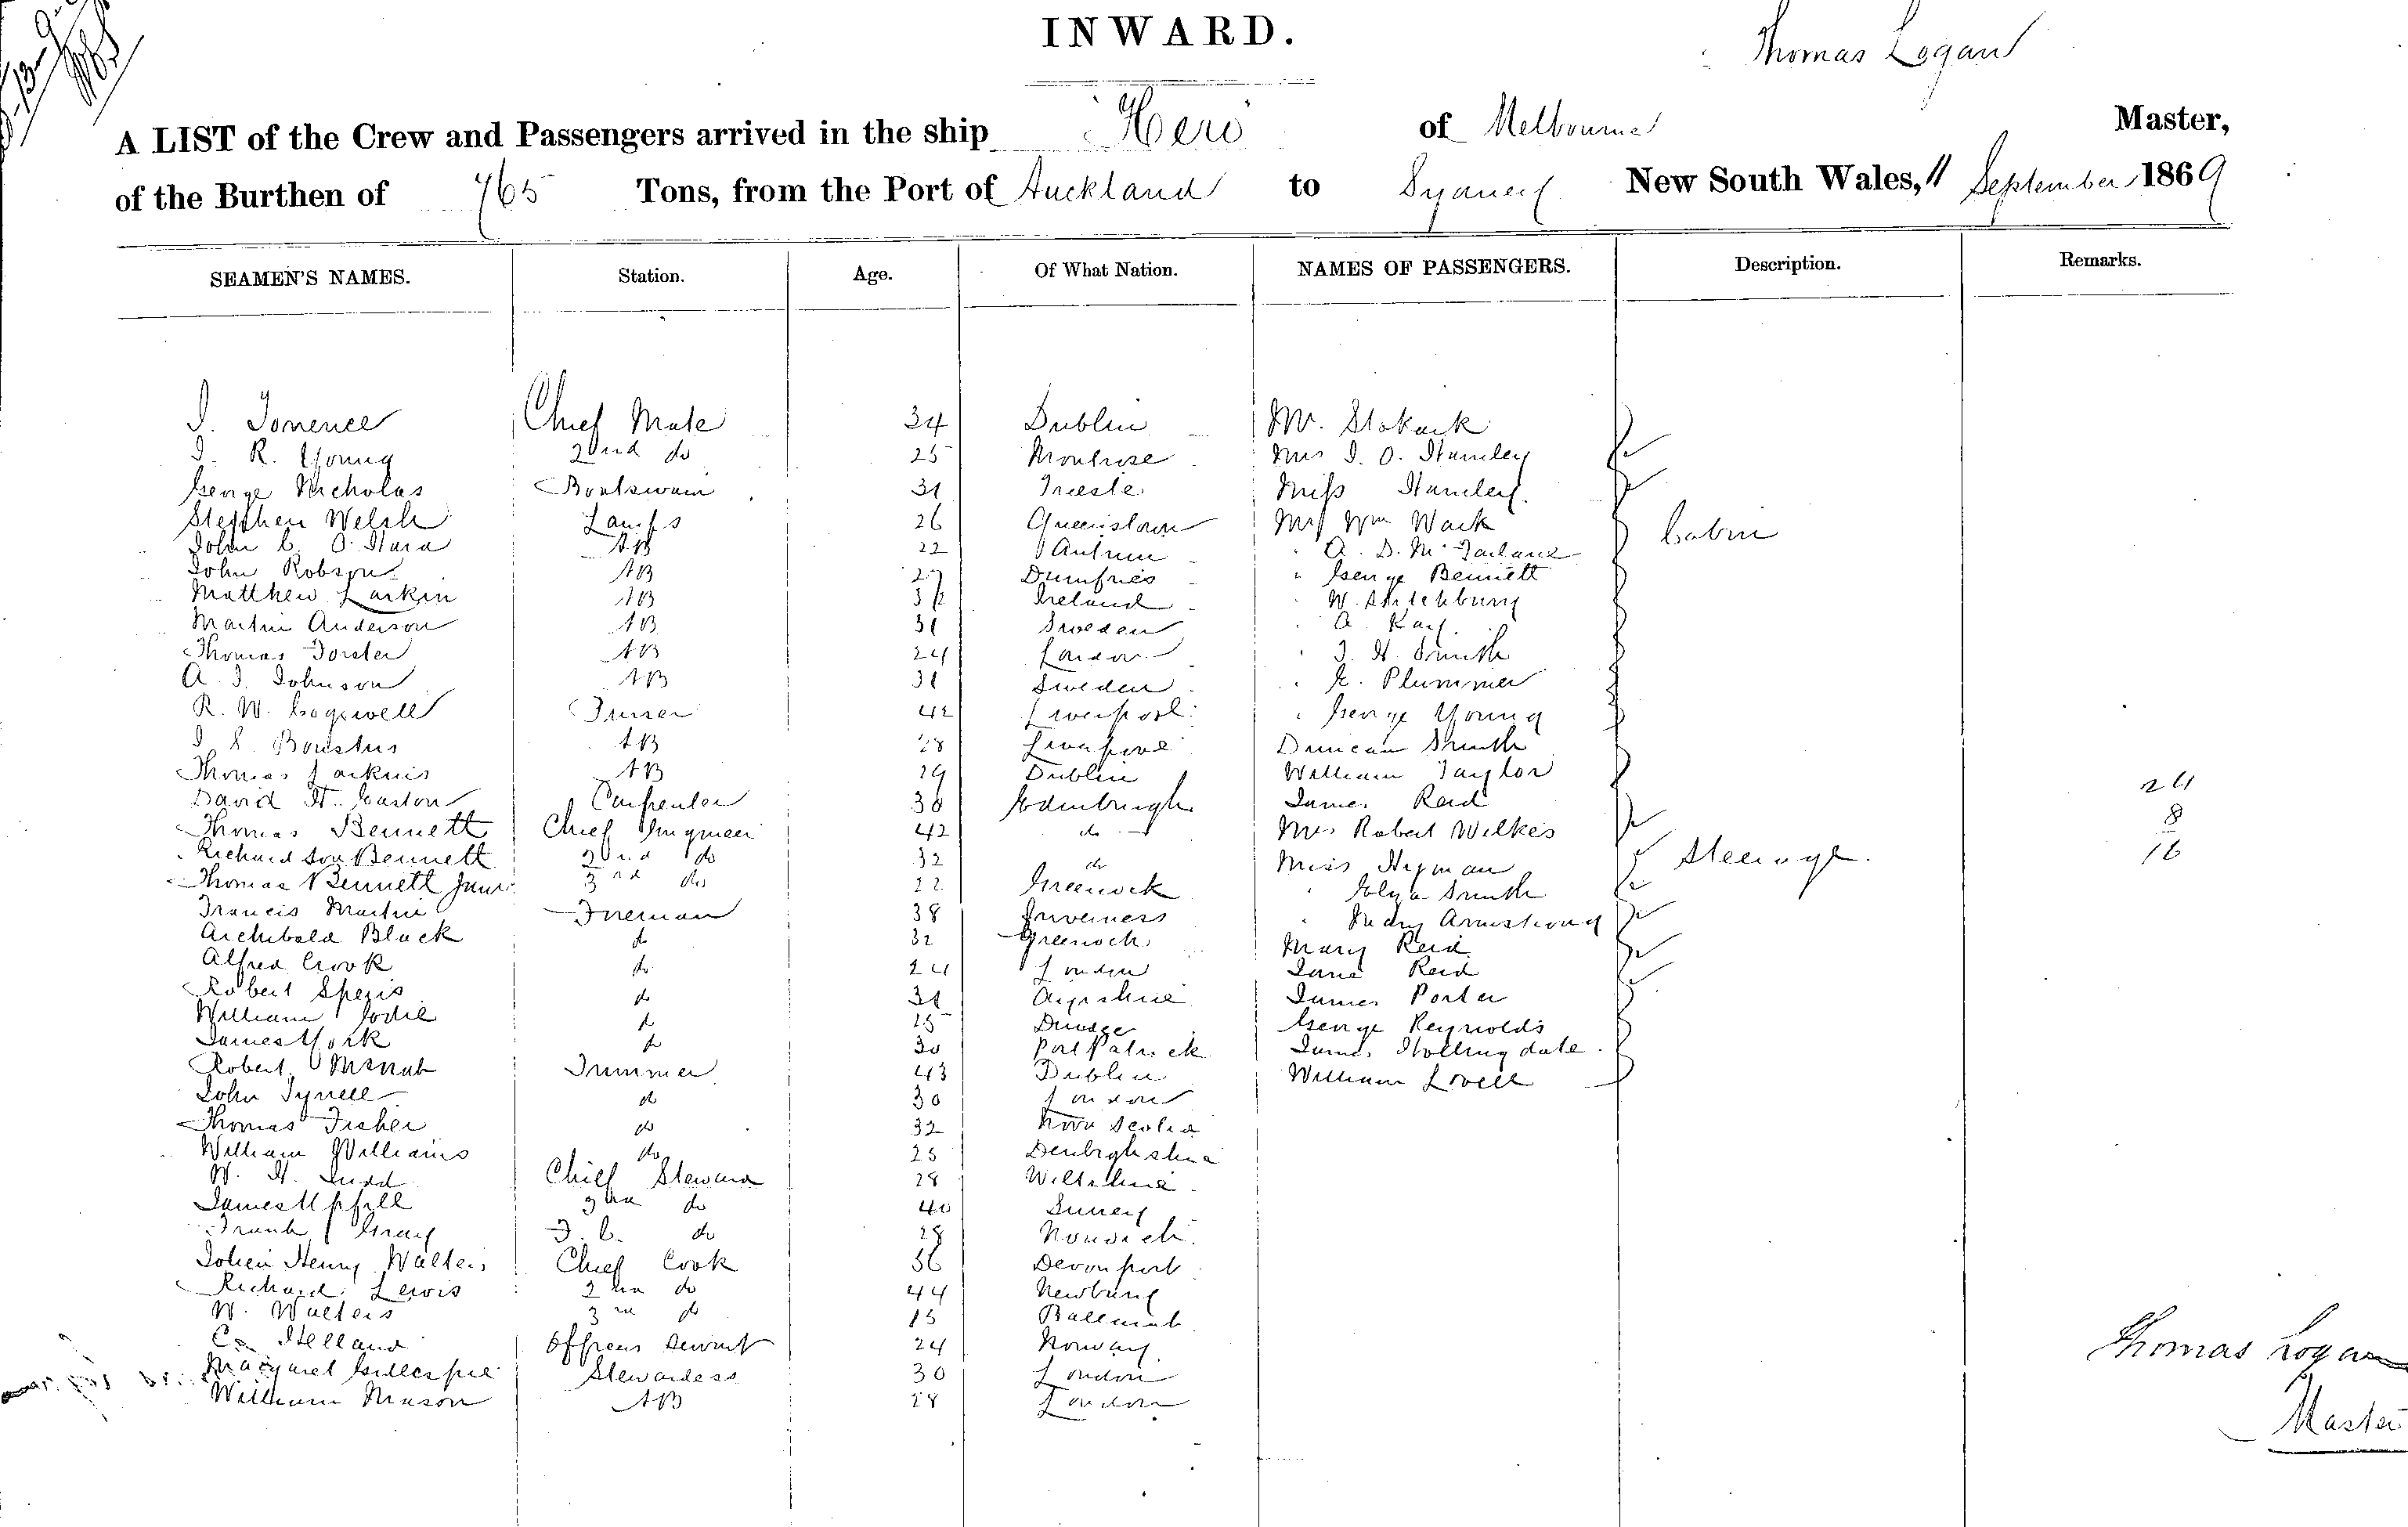 INWARD.
Thomas Logan
A LIST of the Crew and Passengers arrived in the ship Hero of Melbourne Master,
of the Burthen of 765 Tons, from the Port of Auckland to Sydney New South Wales, 11 September 1869
SEAMEN'S NAMES. Station. Age. Of What Nation. NAMES OF PASSENGERS. Description. Remarks.
J. Torrence Chief Mate 34 Dublin Mr.
J. R. Young 2nd do 25 Montrose Mrs J. O. Hamley
George Nicholas Boatswain 31 Trieste Miss Hamley
Stephen Welsh Lamps 26 Queenstown Mr Wm Wark Cabin
John C. O'Hara AB 22 Antrim " A. D. McFarlane
John Robson AB 27 Dumfries " George Bennett
Matthew Larkin AB Ireland " W.
Martin Anderson AB 31 Sweden " A.
Thomas Forster AB 24 London " J. H. Smith
A. J. Johnson AB 31 Sweden " E. Plummer
R. W. Cogswell 42 Liverpool " George Young
AB 28 Liverpool Duncan Smith
Thomas AB 29 Dublin William Taylor
David H. Easton Carpenter 38 Edinburgh James Reid 24
Thomas Bennett Chief Engineer 42 do Mrs Robert Wilkes 8
Richardson Bennett 2nd do 32 do Miss Hyman Steerage. 16
Thomas Bennett Junr 3rd do 22 Greenock " Eliza Smith
Francis Martin Fireman 38 Inverness " Mary Armstrong
Archibald Black do 32 Greenock Mary Reid
Alfred Crook do 24 London Jane Reid
Robert Speirs do 31 Ayrshire James Porter
William do 25 Dundee George Reynolds
James York do 30 Port Patrick James Hollingdale
Robert McNab Trimmer 43 Dublin William Lovell
John Tyrrell do 30 London
Thomas Fisher do 32 Nova Scotia
William Williams do 25 Denbighshire
W. H. Judd Chief Steward 28 Wiltshire
James Upfill 2nd do 40 Surrey
Frank Gray F. C. do 28 Norwich
John Henry Walters Chief Cook 36 Devonport
Richard Lewis 2nd do 44 Newbury
W. Walters 3rd do 15 Ballarat
C. Helland Officers Servant 24 Norway
Margaret Gillespie Stewardess 30 London
William Mason AB 28 London
Thomas Logan
Master